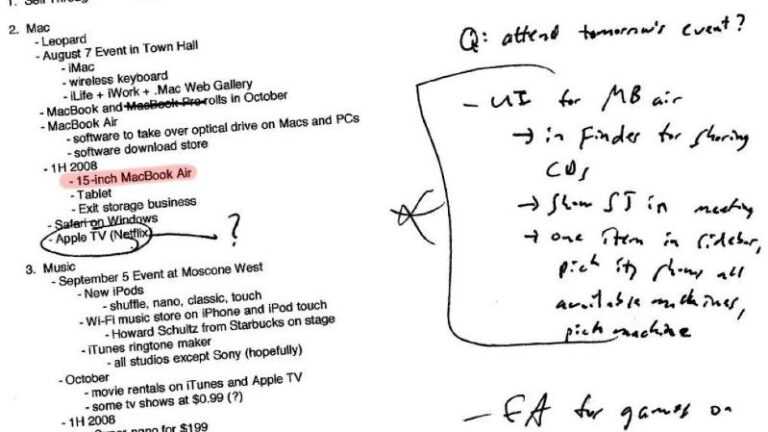 2. Mac
- Leopard
- August 7 Event in Town Hall
- iMac
- wireless keyboard
- iLife + iWork + .Mac Web Gallery
- MacBook and MacBook Pro rolls in October
- MacBook Air
- software to take over optical drive on Macs and PCs
- software download store
- 1H 2008
- 15-inch MacBook Air
- Tablet
- Exit storage business
- Safari on Windows
- Apple TV (Netflix) ?
3. Music
- September 5 Event at Moscone West
- New iPods
- shuffle, nano, classic, touch
- Wi-Fi music store on iPhone and iPod touch
- Howard Schultz from Starbucks on stage
- iTunes ringtone maker
- all studios except Sony (hopefully)
- October
- movie rentals on iTunes and Apple TV
- some tv shows at $0.99 (?)
- 1H 2008
nano for $199
Q: attend tomorrow's event?
- UI for MB air
→ in Finder for sharing
CDs
→ show SJ in meeting
→ one item in sidebar,
pick it, shows all
available machines,
pick machine
- EA for games on